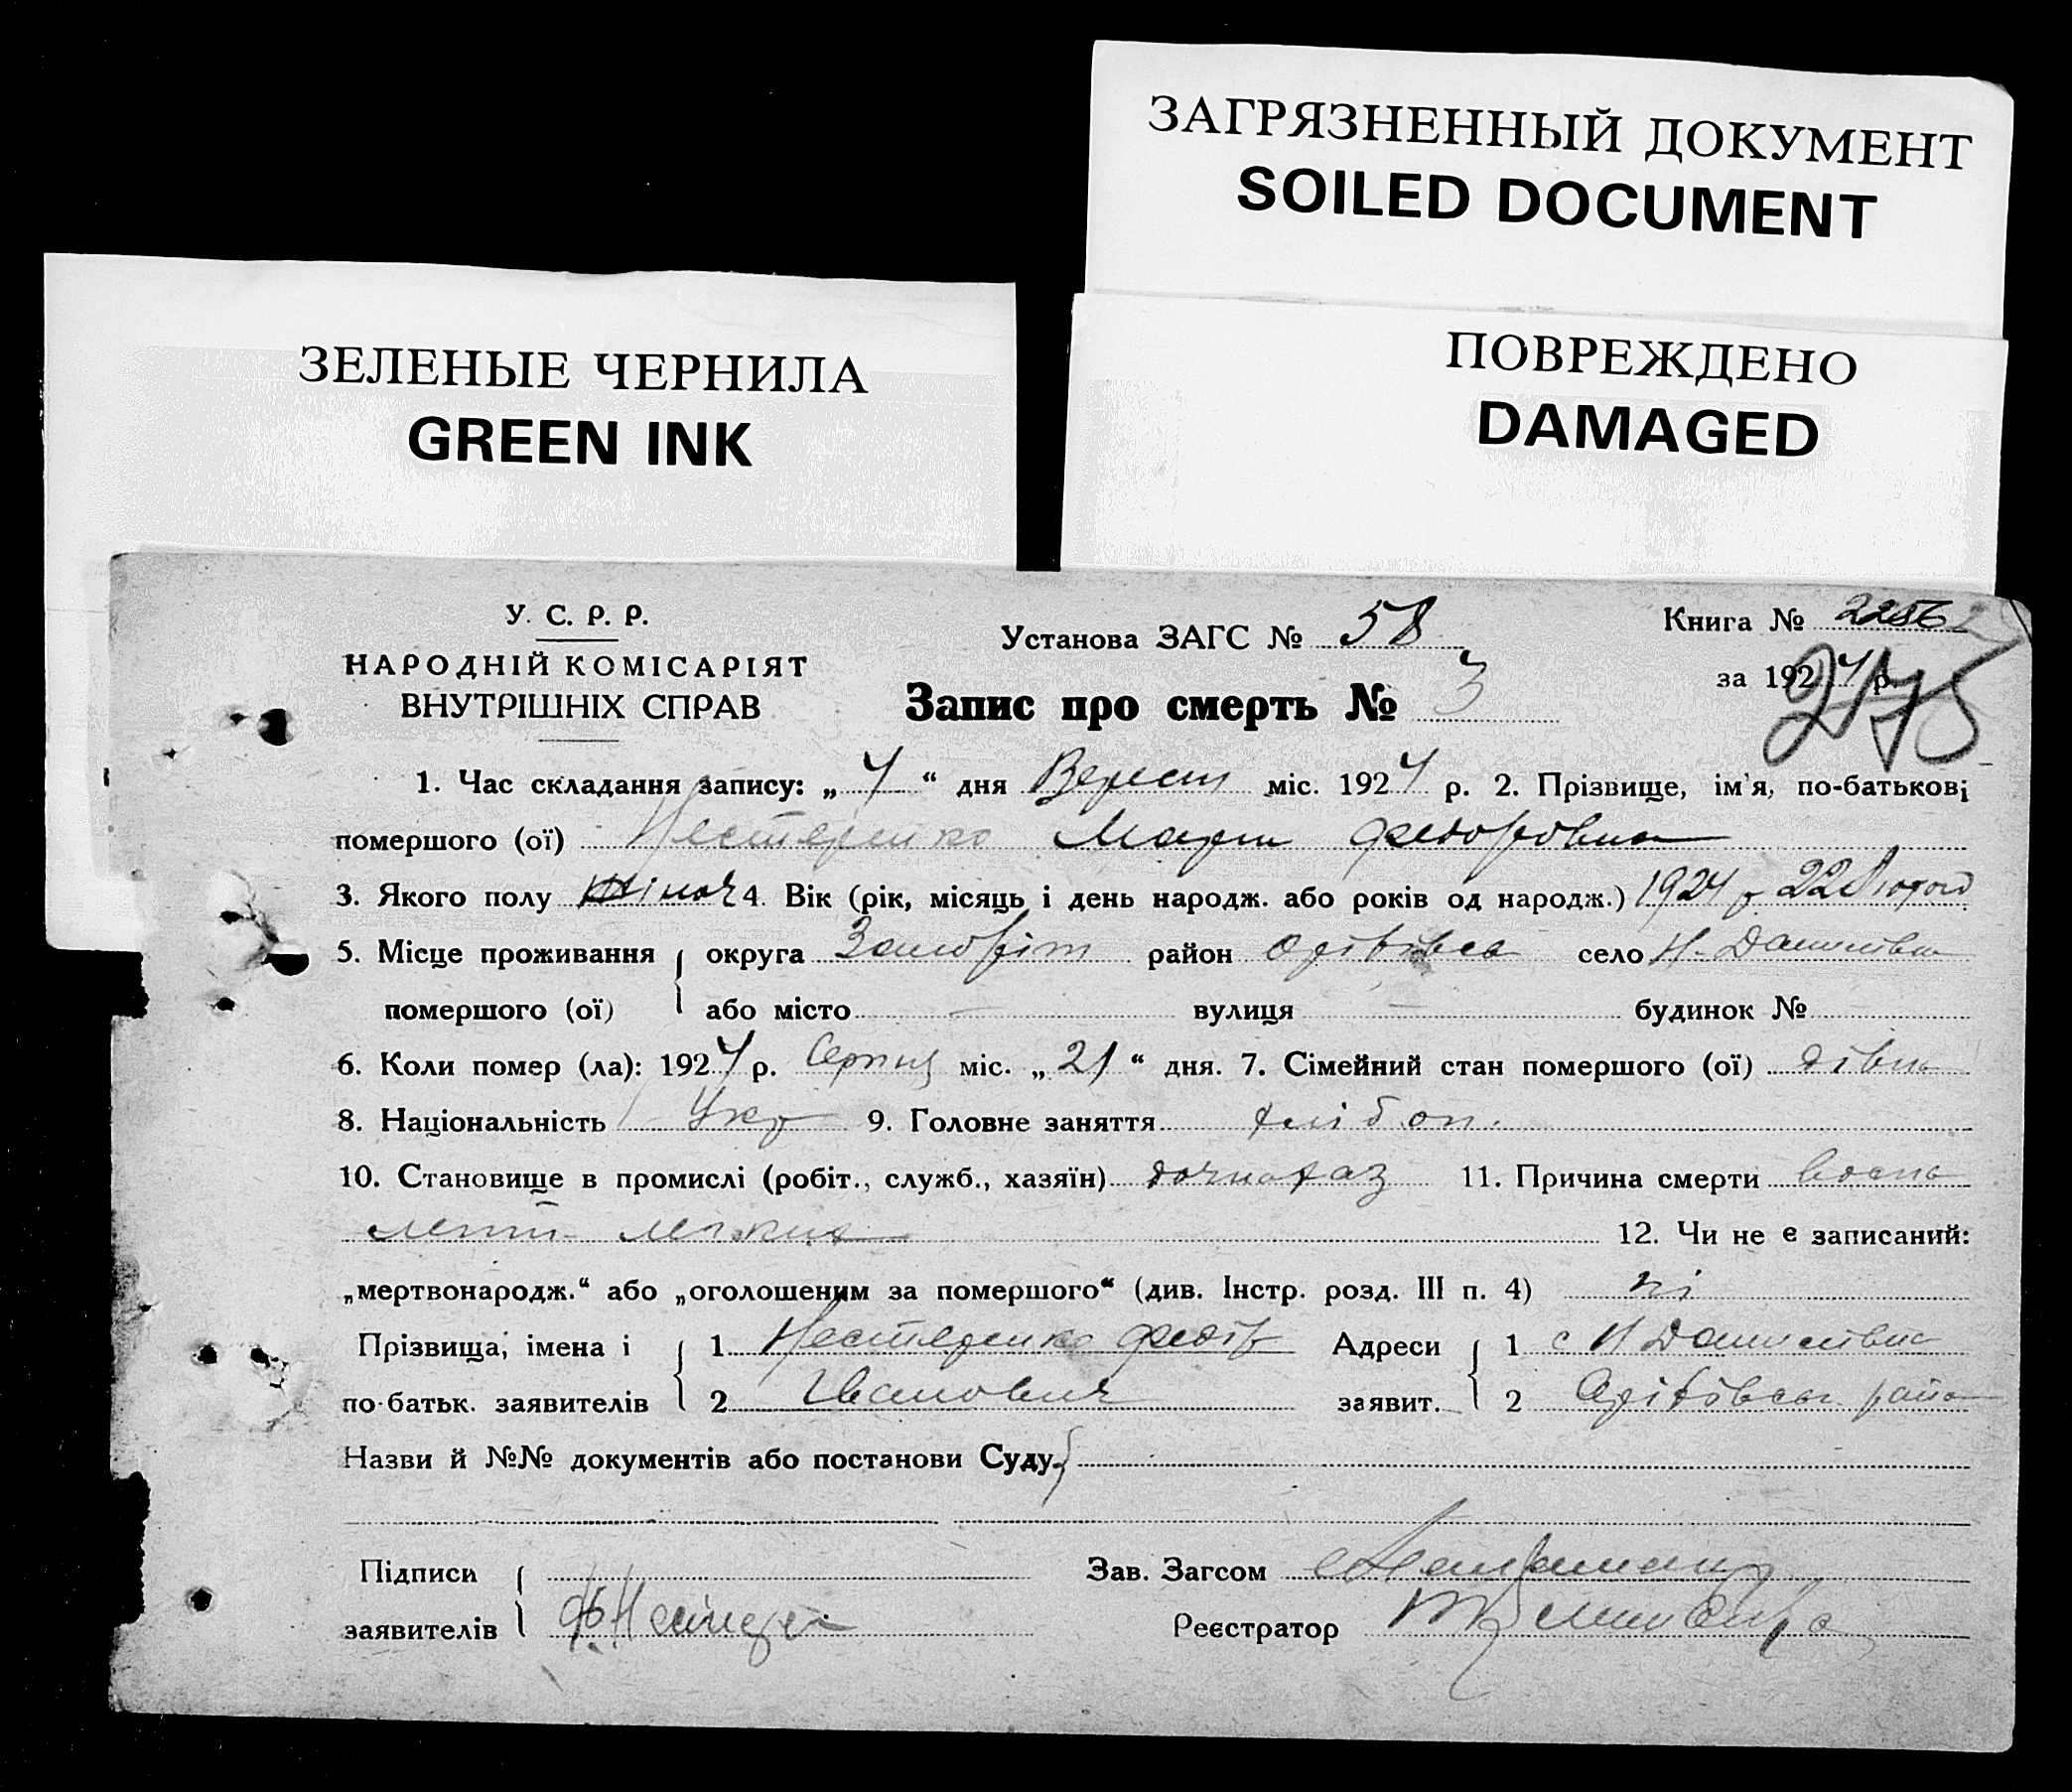 ЗАГРЯЗНЕННЫЙ ДОКУМЕНТ
SOILED DOCUMENT
ПОВРЕЖДЕНО
DAMAGED
ЗЕЛЕНЫЕ ЧЕРНИЛА
GREEN INK
У. С. Р. Р.
НАРОДНІЙ КОМІСАРІЯТ
ВНУТРІШНІХ СПРАВ
Установа ЗАГС № 58
Запис про смерть № 3
Книга №
за 1924 р.
275
1. Час складання запису: „4“ дня Верес міс. 1924 р. 2. Прізвище, ім'я, по-батькові
помершого (ої) Нестеренко Мария Федоровна
3. Якого полу жіноч 4. Вік (рік, місяць і день народж. або років од народж.) 1924 р 22 Лютого
5. Місце проживання округа район село
помершого (ої) або місто — вулиця — будинок №
6. Коли помер (ла): 1924 р. Серпня міс. „21“ дня. 7. Сімейний стан помершого (ої) дівиц
8. Національність Укр 9. Головне заняття хлібоп.
10. Становище в промислі (робіт., служб., хазяїн) 11. Причина смерти
12. Чи не є записаний:
„мертвонародж.“ або „оголошеним за помершого“ (див. Інстр. розд. III п. 4) ні
Прізвища, імена і 1 Нестеренко Федір Адреси 1 с Н
по-батьк. заявителів 2 Иванович заявит. 2
Назви й №№ документів або постанови Суду
Підписи Зав. Загсом
заявителів Реєстратор